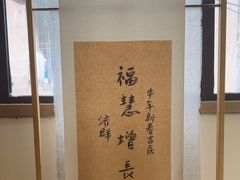 牛年新春吉庆
福慧增長
济群